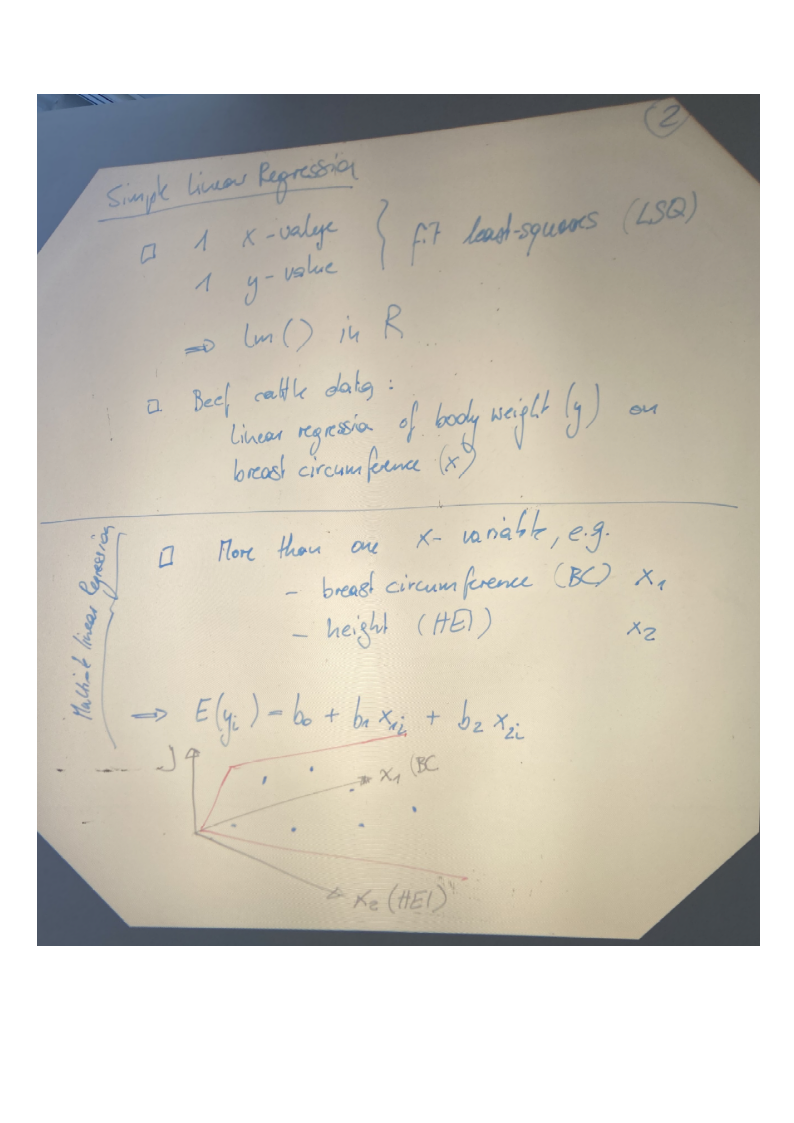 2
Simple Linear Regression
□ 1 x-value } fit least-squares (LSQ)
1 y-value
⇒ lm() in R
□ Beef cattle data:
linear regression of body weight (y) on
breast circumference (x)
Multiple linear Regression
□ More than one x-variable, e.g.
- breast circumference (BC) x₁
- height (HEI) x₂
⇒ E(yᵢ) = b₀ + b₁ x₁ᵢ + b₂ x₂ᵢ
x₁ (BC
x₂ (HEI)